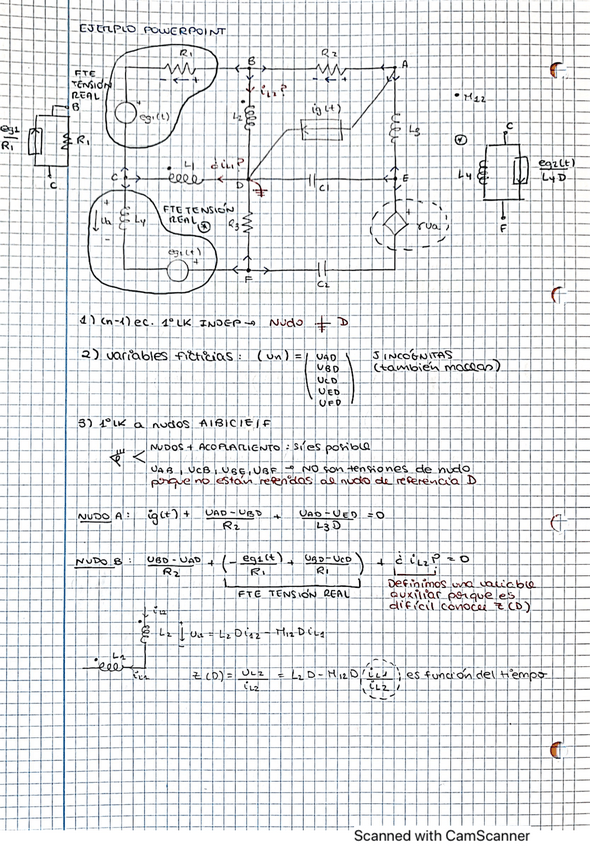 EJEMPLO POWERPOINT
R1
B
R2
A
FTE
TENSIÓN
REAL
B
eg1
R1
R1
C
eg1(t)
iL2?
L2
ig(t)
L3
• M12
C
L4
eg2(t)
L4D
F
L1
iL1?
C
D
C1
E
L4
FTE TENSIÓN
REAL
R3
rua
F
C2
1) (n-1) ec. 1ºLK INDEP → Nudo D
2) variables ficticias : (un) =
UAD
UBD
UCD
UED
UFD
5 INCÓGNITAS
(también mallas)
3) 1ºLK a nudos A|B|C|E|F
NUDOS + ACOPLAMIENTO : sí es posible
UAB, UCB, UBE, UBF → NO son tensiones de nudo
porque no están referidas al nudo de referencia D
NUDO A: ig(t) + UAD - UBD / R2 + UAD - UED / L3D = 0
NUDO B: UBD - UAD / R2 + (- eg1(t) / R1 + UBD - UCD / R1) + ¿iL2? = 0
FTE TENSIÓN REAL
Definimos una variable
auxiliar porque es
difícil conocer Z(D)
iL2
L2 uL2 = L2DiL2 - M12DiL1
L1
iL1
Z(D) = UL2 / iL2 = L2D - M12D iL1 / iL2 es función del tiempo
Scanned with CamScanner